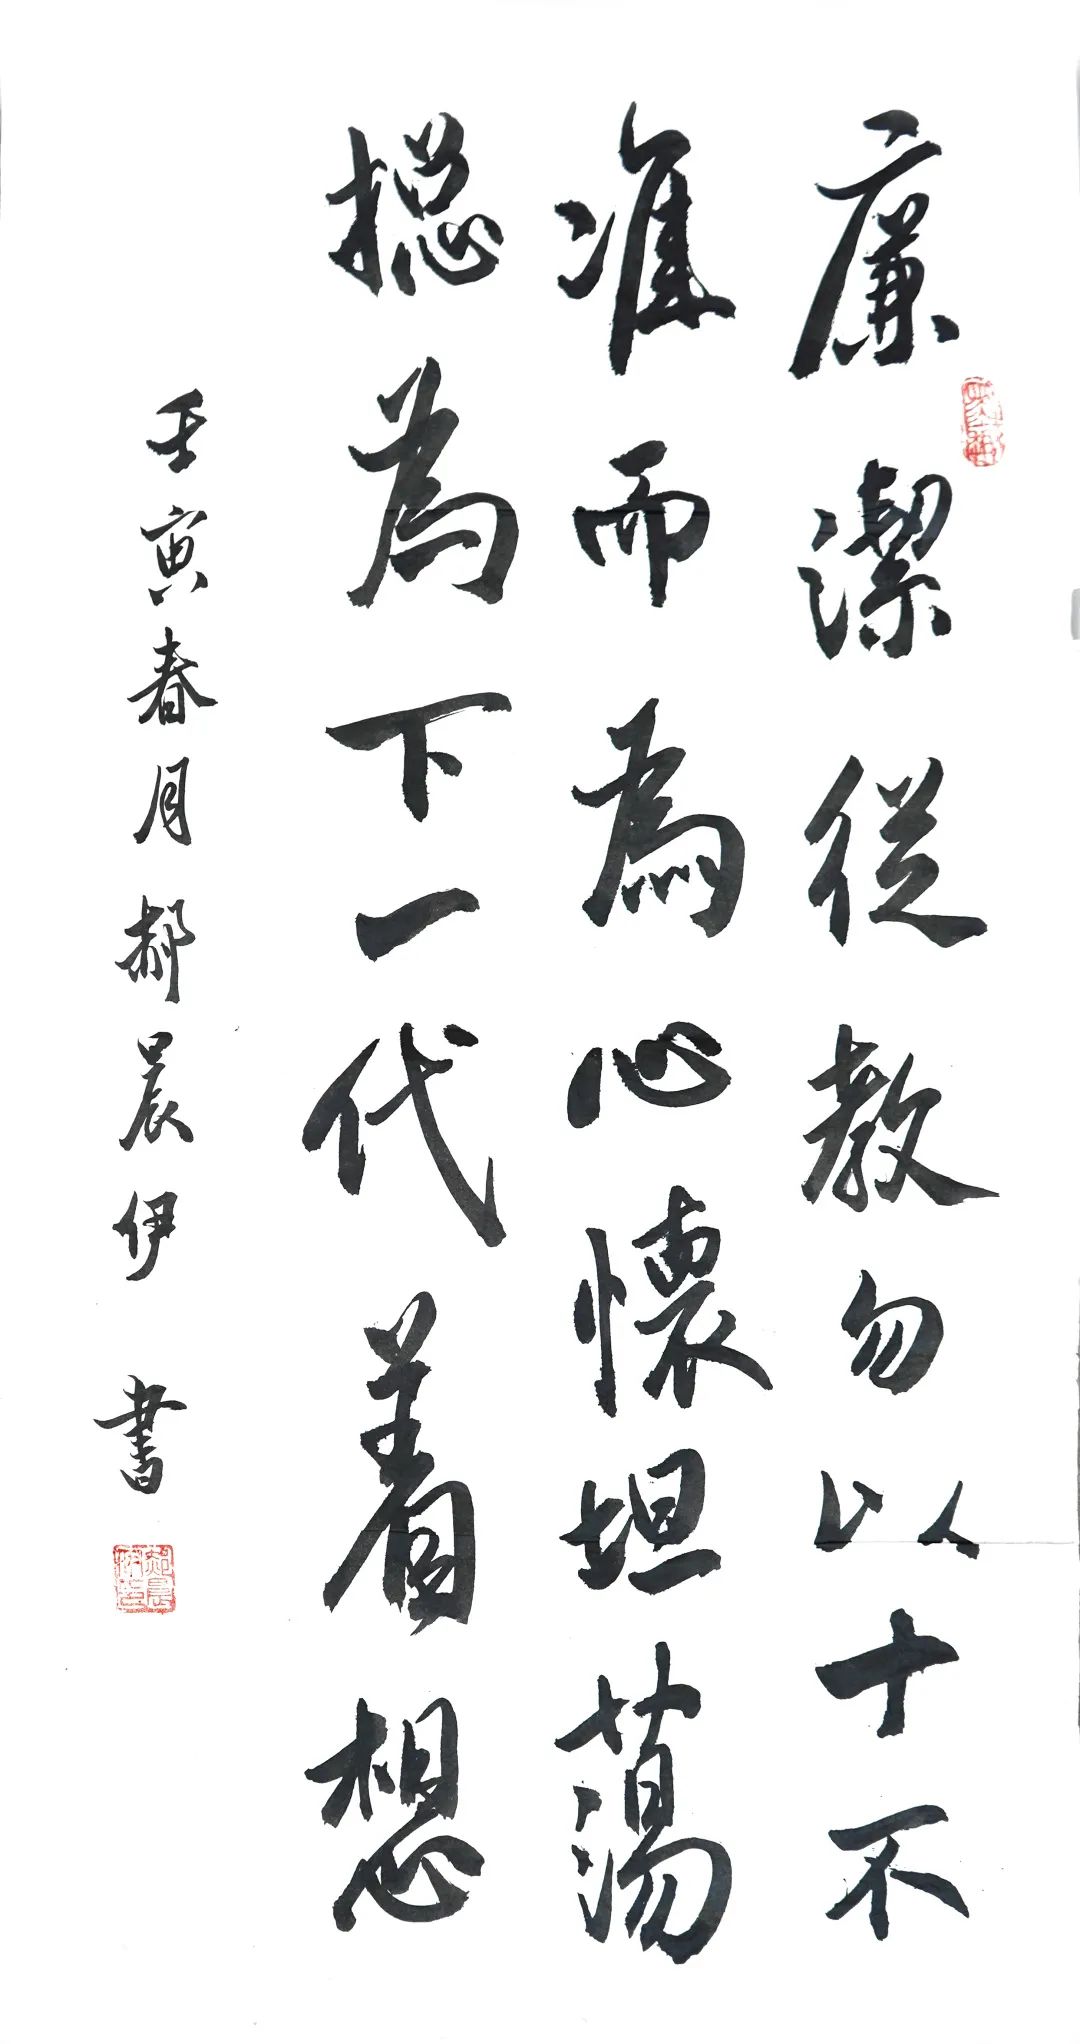 廉潔從教勿以十不
准而為心懷坦蕩
摠為下一代着想
壬寅春月郝晨伊書